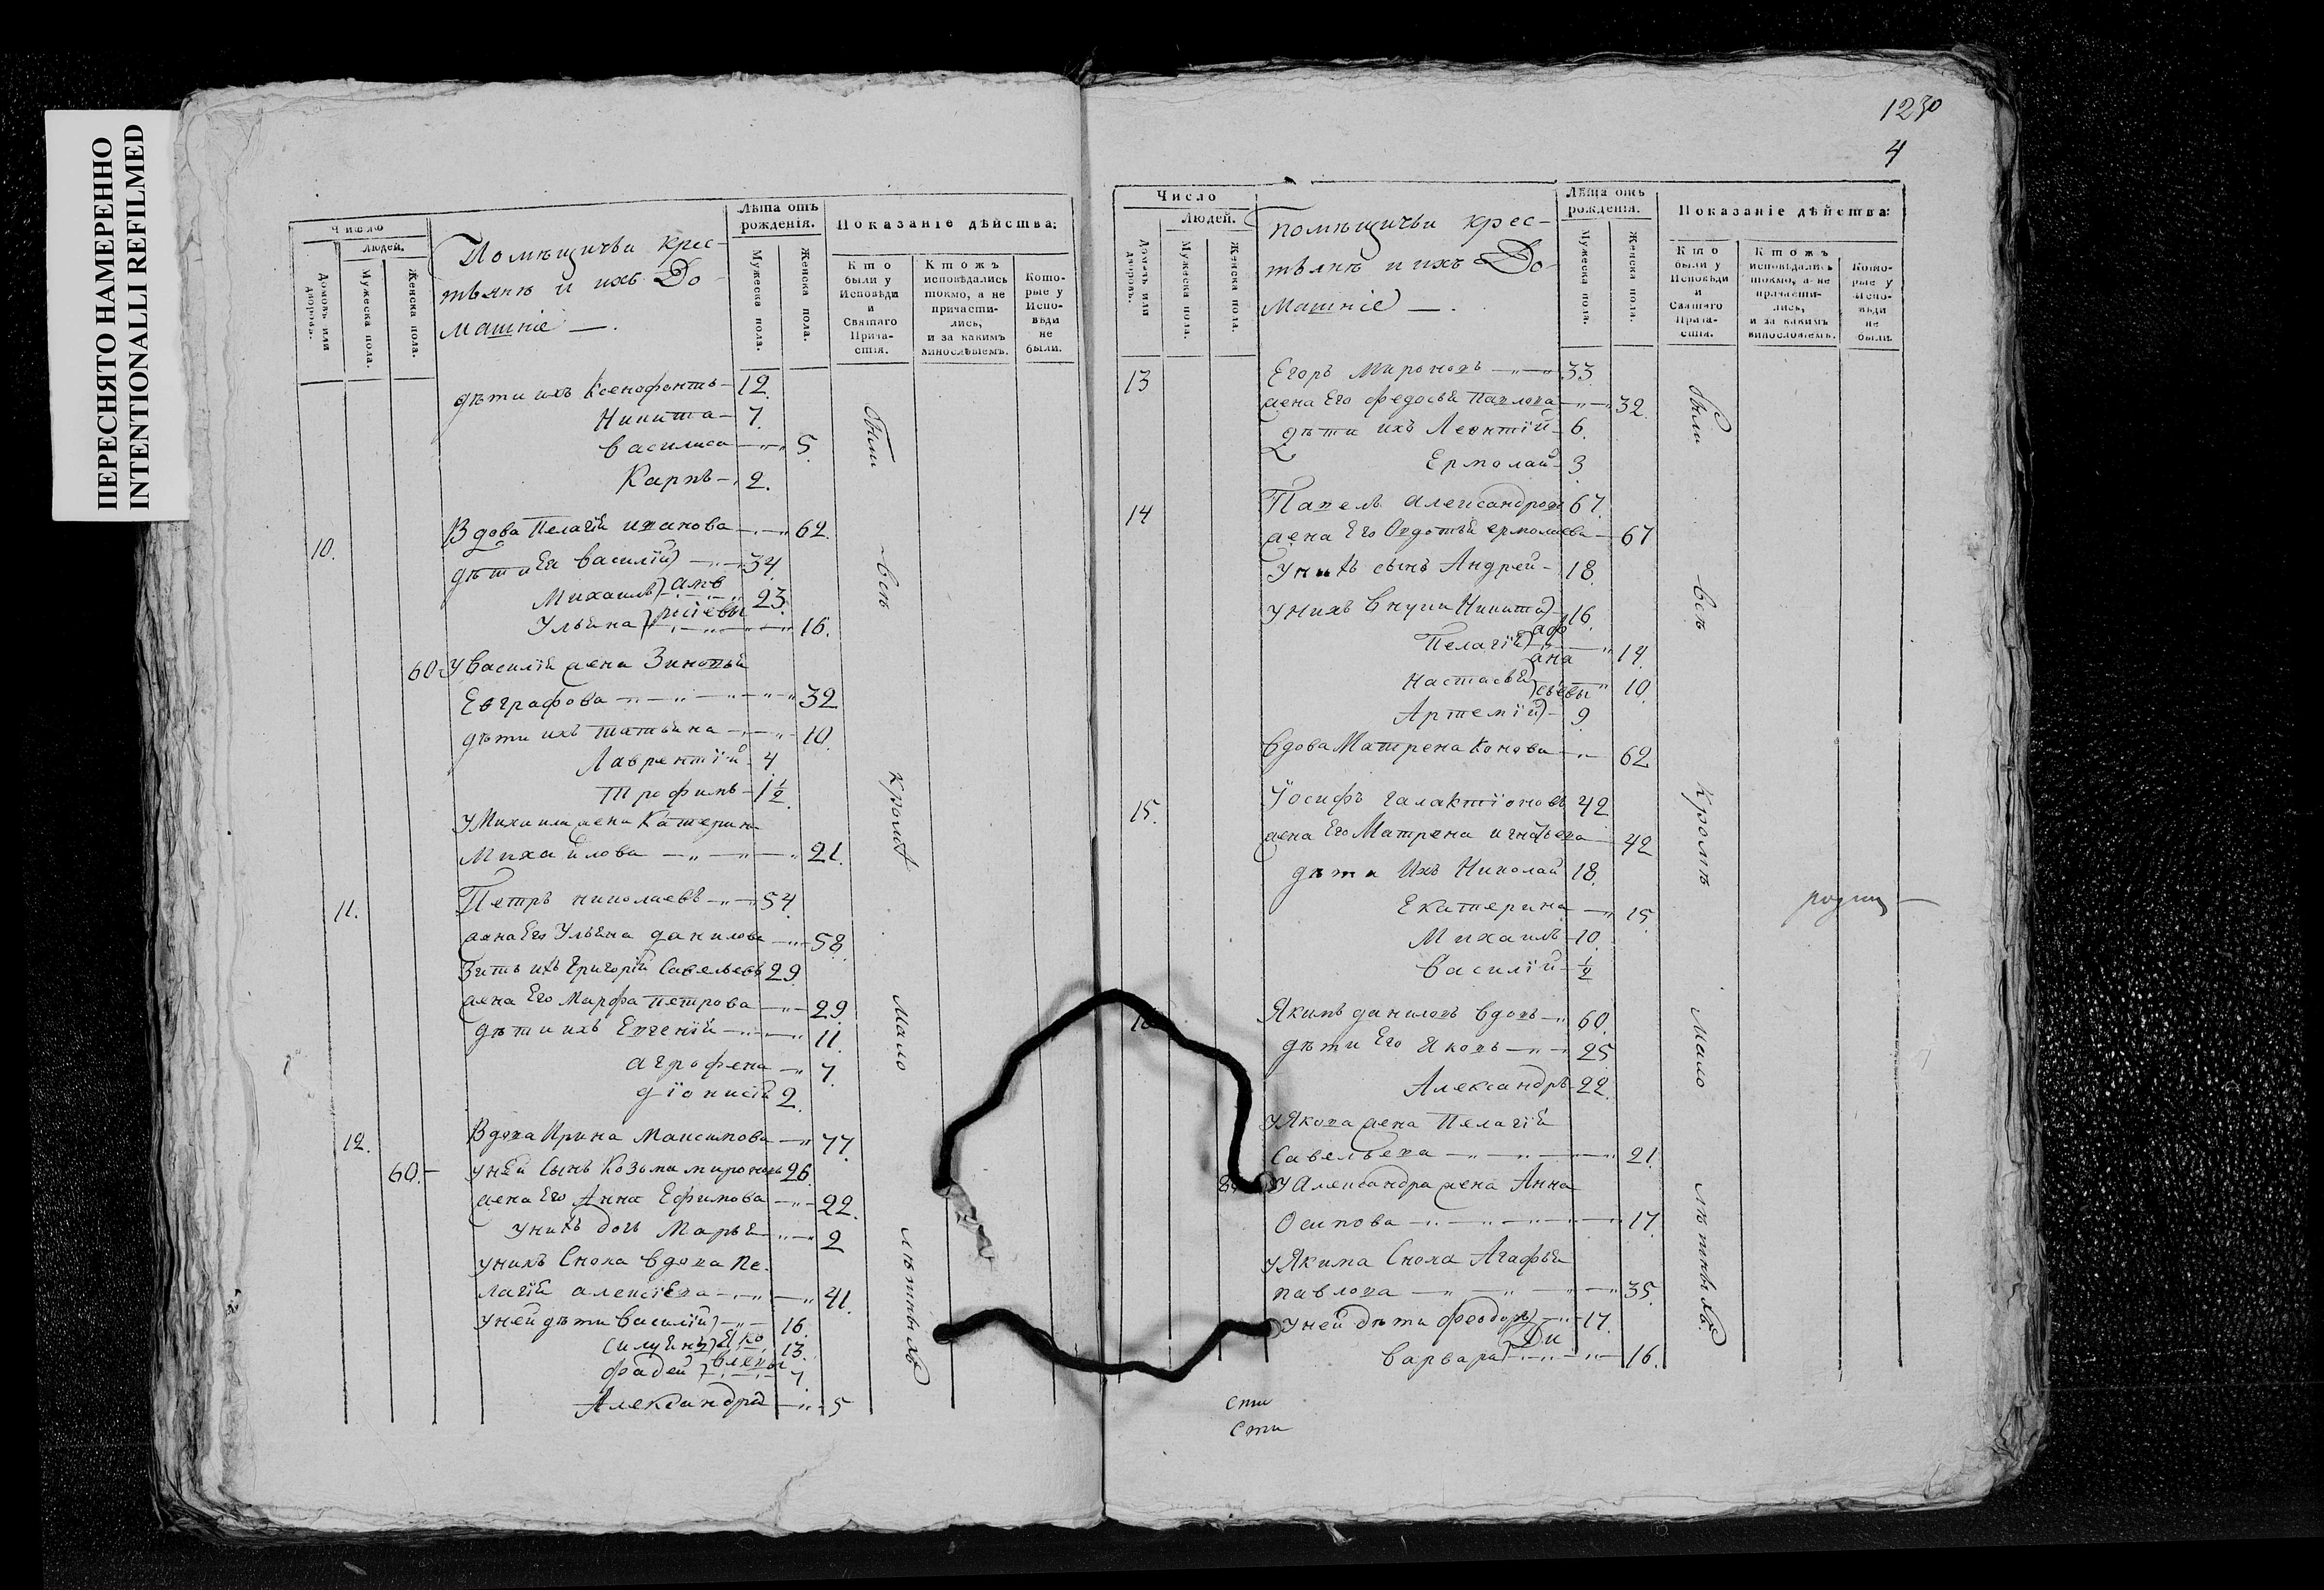 ПЕРЕСНЯТО НАМЕРЕННО
INTENTIONALLI REFILMED
Число
Людей.
Домовъ или дворовъ.
Мужеска пола.
Женска пола.
Помѣщичьи крес-
тьянѣ и ихъ До-
машніе —.
Лѣта отъ рожденія.
Мужеска пола.
Женска пола.
Показаніе дѣйства:
Кто были у Исповѣди и Святаго Прича-стія.
Ктожъ исповѣдались токмо, а не причасти-лись, и за какимъ винословіемъ.
Кото-рые у Испо-вѣди не были.
дѣти ихъ Ксенофонтъ — 12.
Никита — 7.
Василиса — 5.
Карпъ — 2.
10. Вдова Пелагія иванова — 62.
дѣти Ея Василій — 34.
Михаилъ — 23.
Ульяна — 16.
60 У Василія жена Зиновья
Евграфова — 32
дѣти ихъ татьяна — 10.
Лаврентій 4
трофимъ — 1½.
У Михаила жена Катерина
Михайлова — 21.
11. Петръ николаевъ — 54.
жена Его Ульяна данилова — 58.
Зять ихъ Григорій Савельевъ 29.
жена Его Марфа петрова — 29.
дѣти ихъ Евгеній — 11.
аграфена — 7.
діонисій 2.
12. Вдова Ирина Максимова — 77.
60. — у ней Сынъ Козьма мироновъ 26.
жена Его Анна Ефимова — 22.
у нихъ дочь Марья — 2
у нихъ Сноха вдова пе-
лагія алексіева — 41.
у ней дѣти Василій — 16.
13.
фадей — 7.
Александра — 5
были
всѣ
кромѣ
мало
лѣтныхъ
1230
4
Число
Людей.
Домовъ или дворовъ.
Мужеска пола.
Женска пола.
помѣщичьи крес-
тьянѣ и ихъ До-
машніе —.
Лѣта отъ рожденія.
Мужеска пола.
Женска пола.
Показаніе дѣйства:
Кто были у Исповѣди и Святаго Прича-стія.
Ктожъ исповѣдались токмо, а не причасти-лись, и за какимъ винословіемъ.
Кото-рые у Испо-вѣди не были
13 Егоръ Мироновъ — 33.
жена Его федосья Павлова — 32.
дѣти ихъ Леонтій — 6.
Ермолай — 3
14 Павелъ александровъ 67.
жена Его Овдотья ермолаева — 67
У нихъ сынъ Андрей — 18.
У нихъ Внуки Никита — 16.
Пелагія — 14.
настасья — 10.
Артемій — 9
Вдова Матрена Конова — 62
15. Іосифъ галактіоновъ 42
жена Его Матрена игнатьева — 42
дѣти Ихъ Николай 18.
Екатерина — 15.
Михаилъ — 10.
Василій — ½
Якимъ даниловъ вдовъ — 60.
дѣти Его Яковъ — 25
Александръ — 22.
У Якова жена Пелагія
Савельева — 21.
У Александра жена Анна
Осипова — 17.
У Якима Сноха Агафья
павлова — 35.
У ней дѣти феодоръ — 17.
Варвара — 16.
были
всѣ
кромѣ
мало
лѣтныхъ
сти
сти